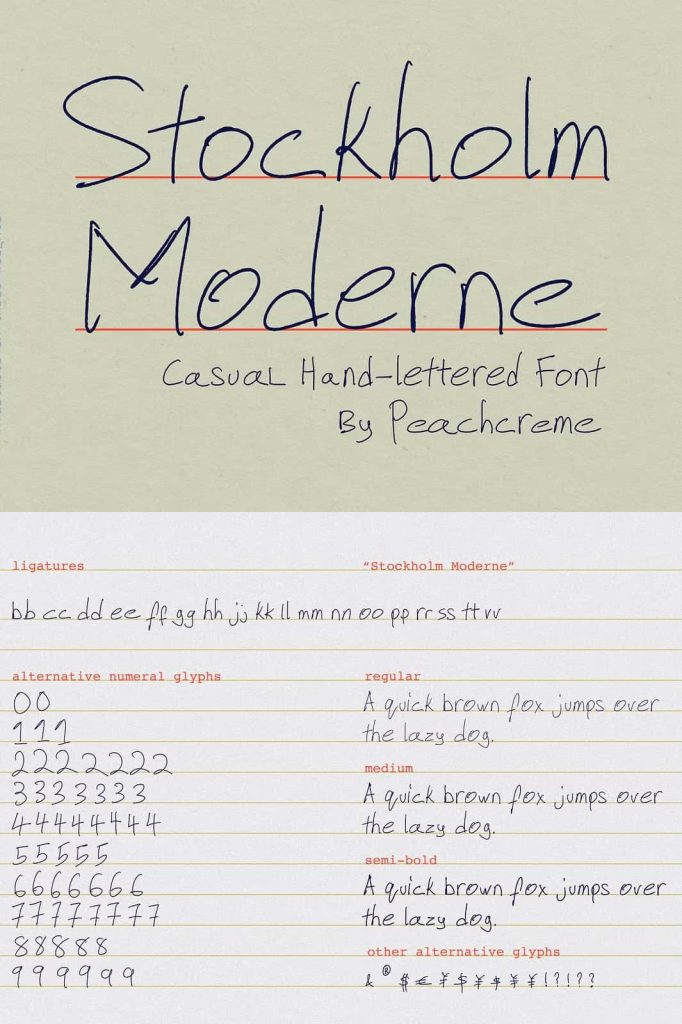 Stockholm
Moderne
Casual Hand-lettered Font
By Peachcreme
ligatures
bb cc dd ee ff gg hh jj kk ll mm nn oo pp rr ss tt vv
alternative numeral glyphs
00
111
2222222
3333333
44444444
55555
6666666
77777777
88888
999999
"Stockholm Moderne"
regular
A quick brown fox jumps over
the lazy dog.
medium
A quick brown fox jumps over
the lazy dog.
semi-bold
A quick brown fox jumps over
the lazy dog.
other alternative glyphs
& @ $ € ¥ $ ¥ $ ¥ ¥ ! ? ! ? ?